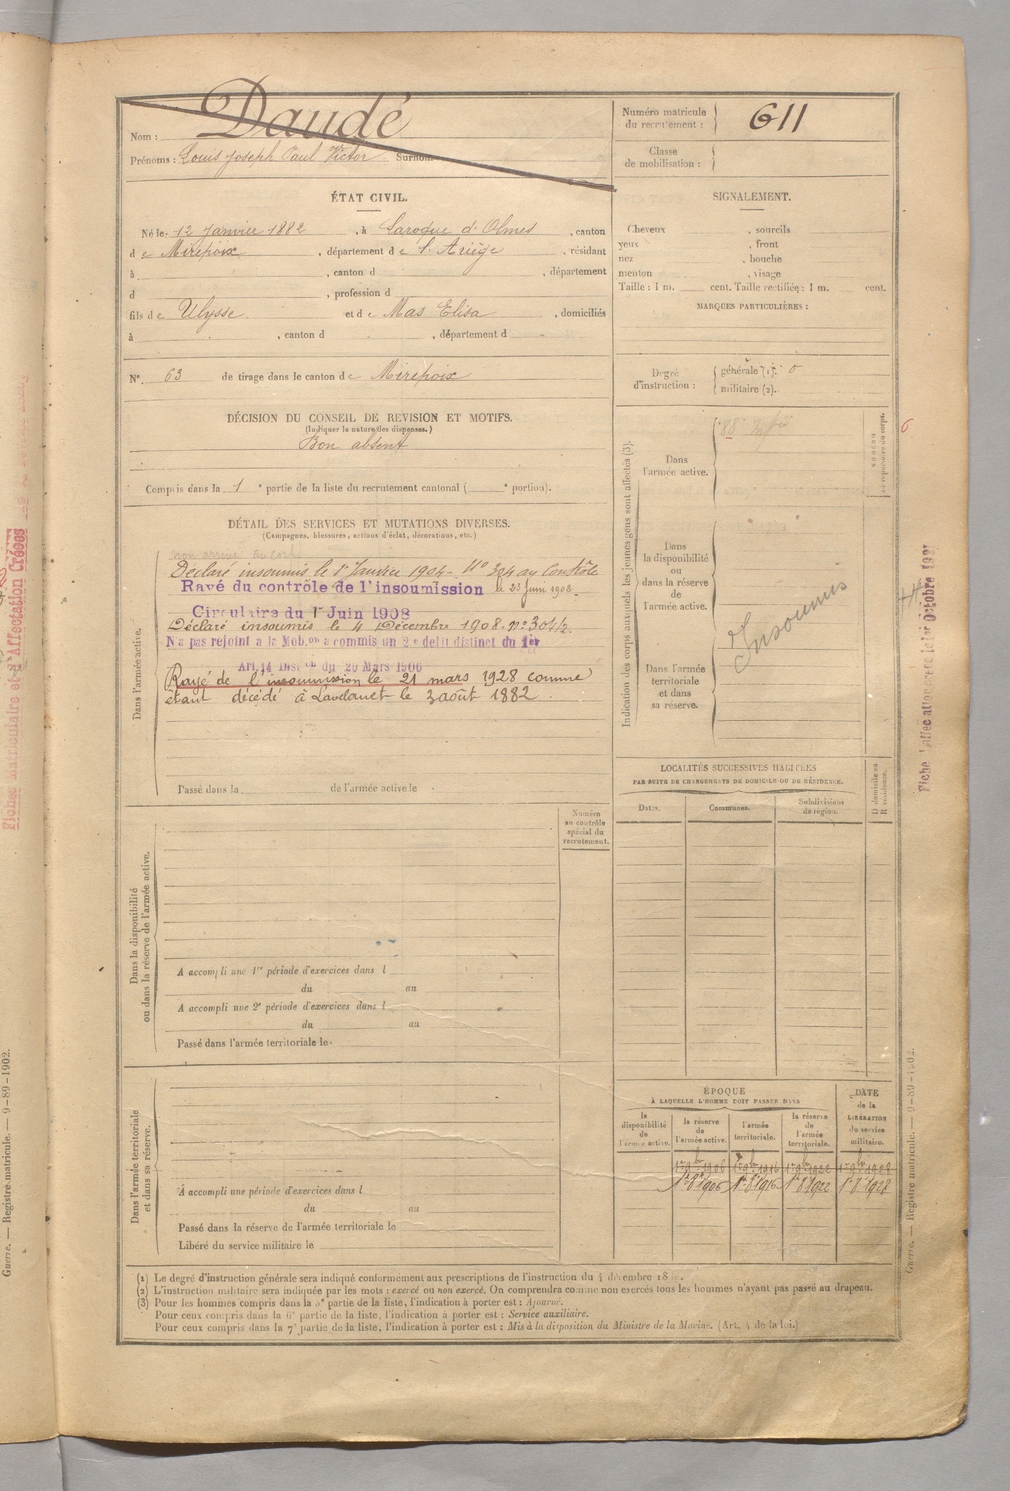 Nom : Daudé
Prénoms : Louis Joseph Paul Victor Surnom
Numéro matricule du recrutement : 611
Classe de mobilisation :
ÉTAT CIVIL.
Né le 12 Janvier 1882, à Laroque d'Olmes, canton
de Mirepoix, département de l'Ariège, résidant
à , canton d , département
d , profession d
fils de Ulysse et de Mas Elisa, domiciliés
à , canton d , département d
N° 63 de tirage dans le canton de Mirepoix
SIGNALEMENT.
Cheveux , sourcils
yeux , front
nez , bouche
menton , visage
Taille : 1 m. cent. Taille rectifiée : 1 m. cent.
MARQUES PARTICULIÈRES :
Degré d'instruction : générale (1). 0
militaire (2).
DÉCISION DU CONSEIL DE REVISION ET MOTIFS.
(Indiquer la nature des dispenses.)
Bon absent
Compris dans la 1e partie de la liste du recrutement cantonal ( e portion).
DÉTAIL DES SERVICES ET MUTATIONS DIVERSES.
(Campagnes, blessures, actions d'éclat, décorations, etc.)
Dans l'armée active.
non arrivé au corps
Déclaré insoumis le 1er Janvier 1904 - N° 324 au Contrôle
Rayé du contrôle de l'insoumission le 23 Juin 1908
Circulaire du 1er Juin 1908
Déclaré insoumis le 4 Décembre 1908. N° 301/2.
N'a pas rejoint a la Mob.on a commis un 2e délit distinct du 1er
Art. 14 Inst.on du 20 Mars 1906
Rayé de l'insoumission le 21 mars 1928 comme
étant décédé à Lavelanet le 3 août 1882
Passé dans la de l'armée active le
Indication des corps auxquels les jeunes gens sont affectés (3).
Dans l'armée active.
Dans la disponibilité ou dans la réserve de l'armée active.
Insoumis
Dans l'armée territoriale et dans sa réserve.
6
LOCALITÉS SUCCESSIVES HABITÉES
PAR SUITE DE CHANGEMENTS DE DOMICILE OU DE RÉSIDENCE.
Dates. Communes. Subdivisions de région. D domicile ou R résidence.
Numéro au contrôle spécial du recrutement.
Dans la disponibilité ou dans la réserve de l'armée active.
A accompli une 1re période d'exercices dans l
du au
A accompli une 2e période d'exercices dans l
du au
Passé dans l'armée territoriale le
Dans l'armée territoriale et dans sa réserve.
A accompli une période d'exercices dans l
du au
Passé dans la réserve de l'armée territoriale le
Libéré du service militaire le
ÉPOQUE
À LAQUELLE L'HOMME DOIT PASSER DANS
DATE de la LIBÉRATION du service militaire.
la disponibilité de l'armée active.
la réserve de l'armée active.
l'armée territoriale.
la réserve de l'armée territoriale.
1er 9bre 1906 1er 9bre 1916 1er 9bre 1922 1er 9bre 1928
1er 8bre 1906 1er 8bre 1916 1er 8bre 1922 1er 8bre 1928
(1) Le degré d'instruction générale sera indiqué conformément aux prescriptions de l'instruction du 4 décembre
(2) L'instruction militaire sera indiquée par les mots : exercé ou non exercé. On comprendra comme non exercés tous les hommes n'ayant pas passé au drapeau.
(3) Pour les hommes compris dans la 5e partie de la liste, l'indication à porter est : Ajourné.
Pour ceux compris dans la 6e partie de la liste, l'indication à porter est : Service auxiliaire.
Pour ceux compris dans la 7e partie de la liste, l'indication à porter est : Mis à la disposition du Ministre de la Marine. (Art. 4 de la loi.)
Guerre. — Registre-matricule. — 9-89-1902.
Guerre. — Registre matricule. — 9-89-1902.